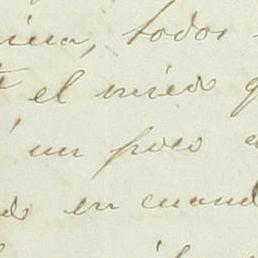 todos
el miedo
un poco
en cuand